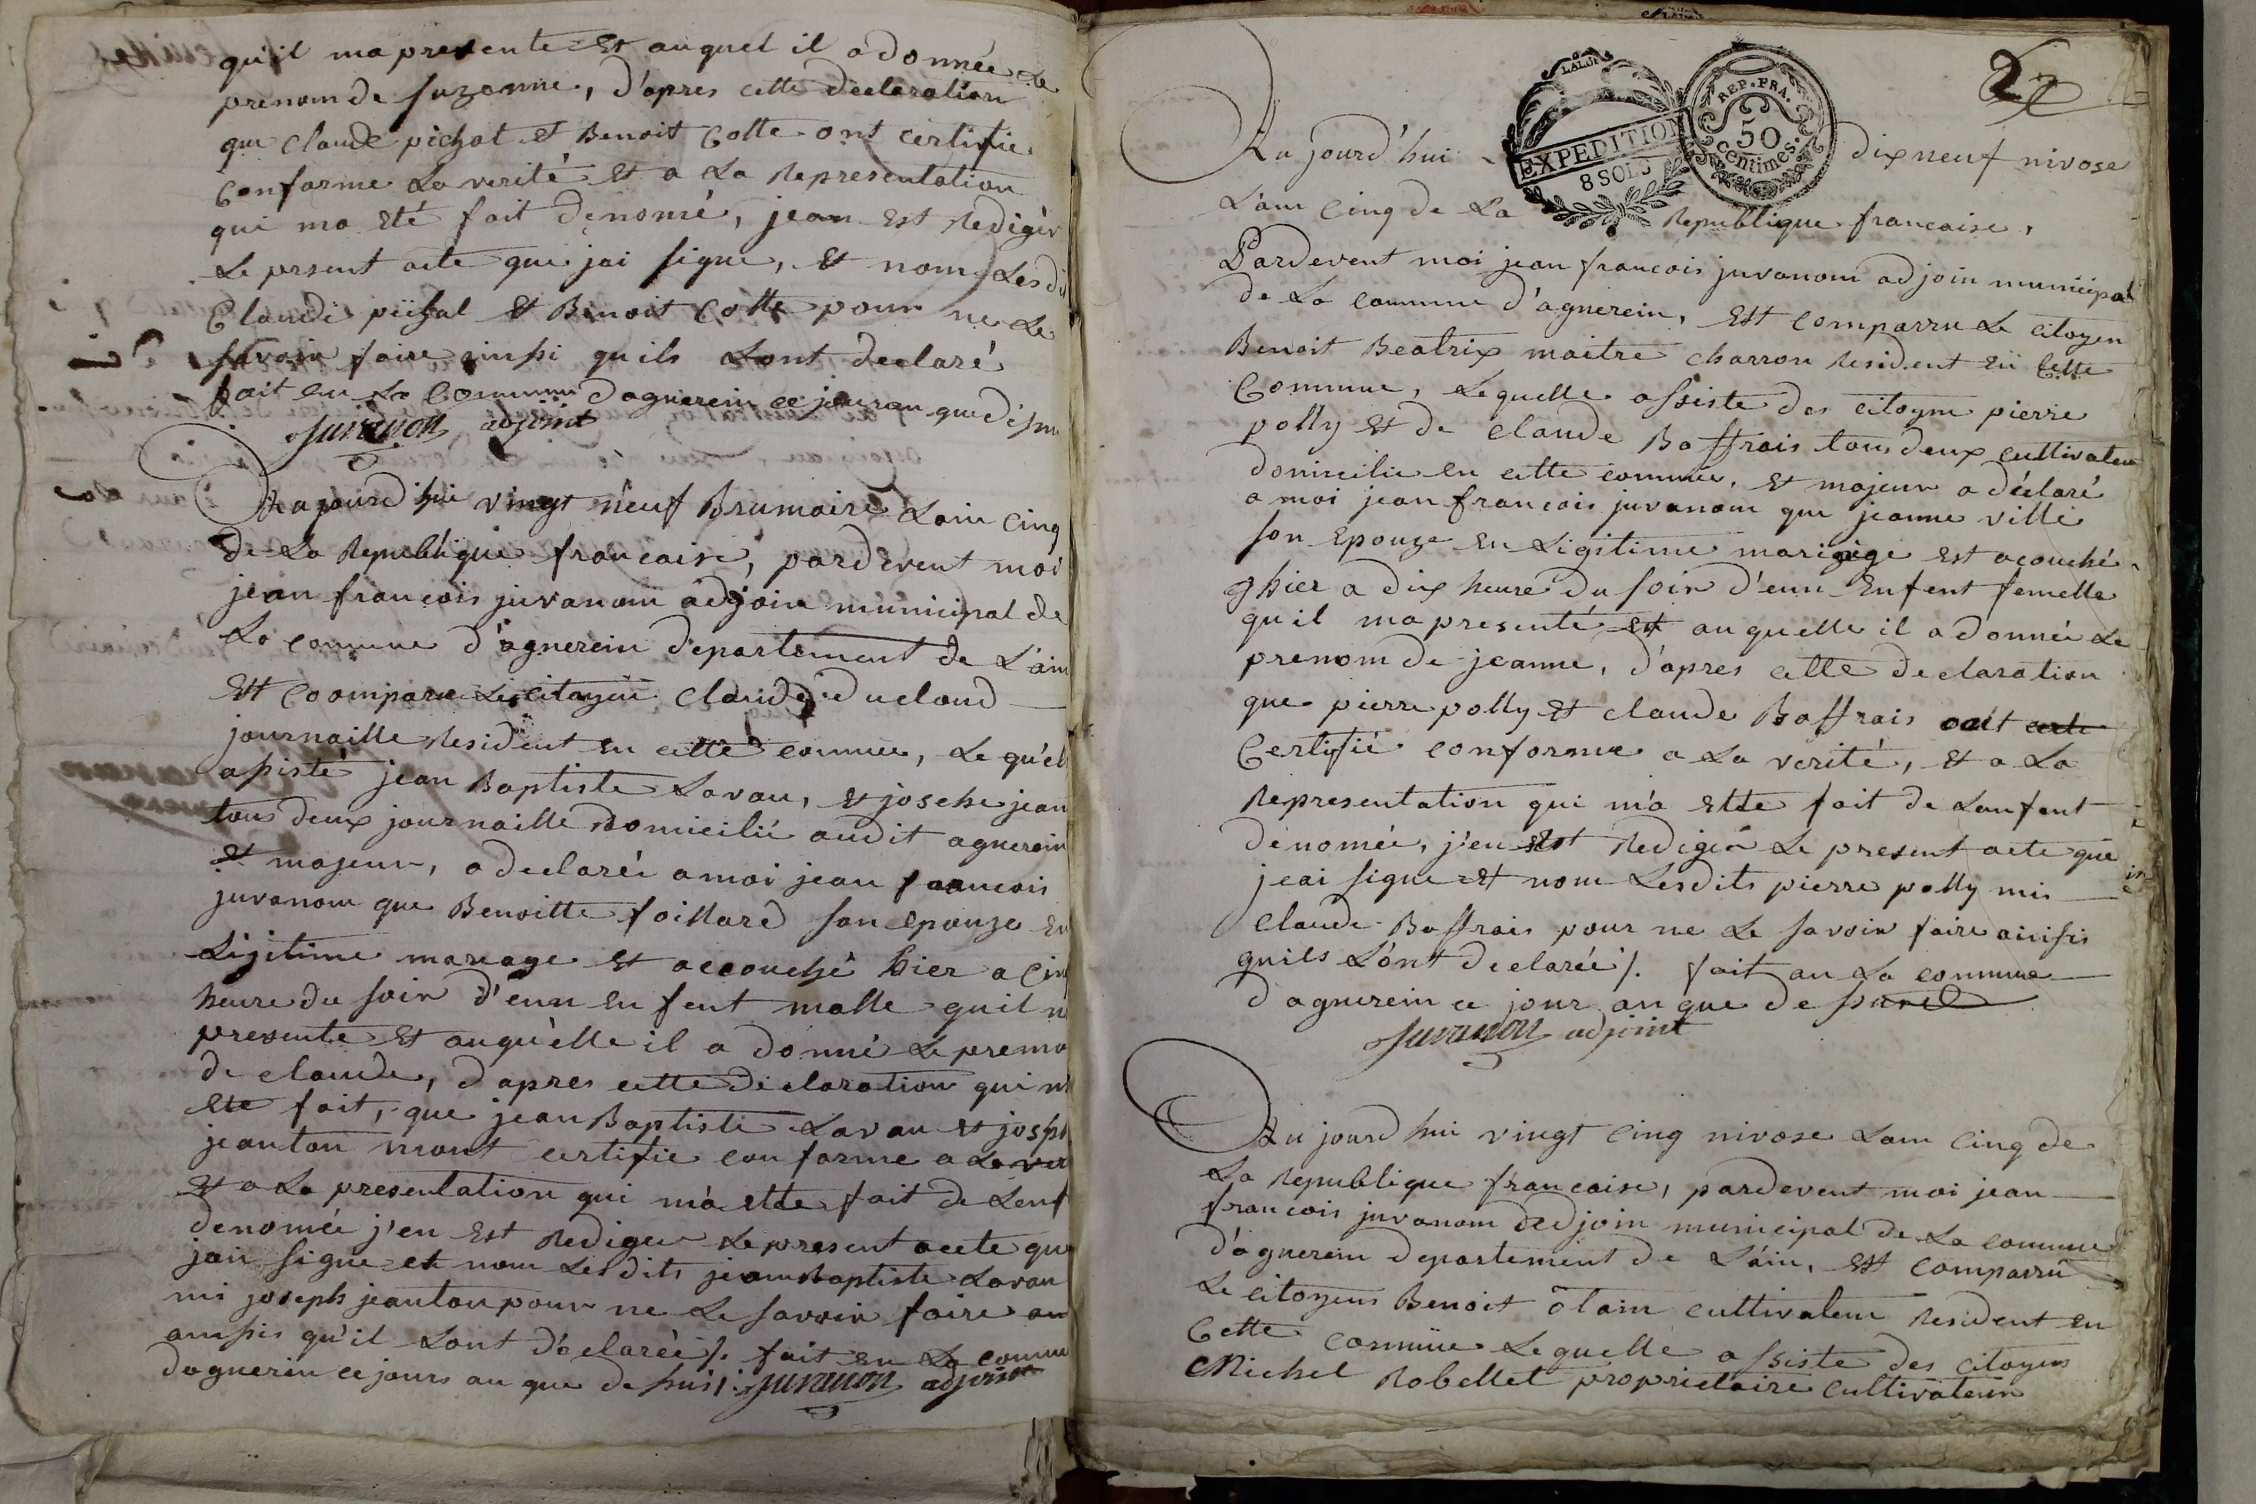 qu'il ma presente et auquel il a donnée le
prenom de suzanne, d'apres cette declaration
que claude pichat et Benoit Cotte ont certifie
conforme la verité et a la representation
qui ma eté fait denomé, jean est redigér
Le prsent acte que jai signe, et nom Lesdi
Claude pichat et Benoit Cotte pour ne le
savoir faire ainssi quils Lont declaré
fait en La Commun d'agnerein ce jour an que dessu
juvanon adjoint
Aujourd'hui vingt neuf Brumaire Lain Cinq
de La Republiquie francaise, pardevent moi
jean françois juvanom adjoin municipal de
La comune d'agnerein departement de L'ain
Est coomparu Le citoyein claude ducloud
journaille resident en cette comuee, Le qu'el
assisté jean Baptiste Lavau, et josehe jean
tous deux journaille domicilié audit agnerein
et majeur, a declaréé a moi jean francois
juvanom que Benoitte foillard son epouze en
Ligitime mareage et accouché hier a cin
heure du soir d'eun enfent malle quil m
presente et auquèlle il a donné Le preno
de claude, d'apres cette declaration qui m
ete fait, que jean Baptiste Lavau et josph
jeanton mont certifie conforme a La ver
et a La presentation qui m'a ette fait de Lenf
denomée j'en est rediger Le present acete que
jair signe et nom Lesdits jean Baptiste Lavau
ni joseph jeanton pour ne Le savoir faire an
ainssis qu'il Lont déclaréé /. fait en La comu
dagnerin ce jours an que dessus /. juvanon adjoint
2
LALOI
EXPEDITION
8 SOLS
REP. FRA.
50
Centimes.
Aujourd'hui dix neuf nivose
L'ain cinq de La Republique francaise,
Pardevent moi jean francois juvanom adjoin municipal
de La commune d'agnerein, Est comparru Le citoyen
Benoit Beatrix maitre charron resident en Cette
Commune, Lequelle assiste des citoyne pierre
polly et de claude Baffrais tous deux cultivateur
domicilie en cette comuée, et majeur a déclaré
a moi jean francois juvanom que jeanne ville
son Epouze en Ligitime mariaige est acouché
hier a dix heure du soir d'eun Enfent femelle
qu'il ma presenté et auquelle il a donnée Le
prenom de jeanne, d'apres cette declaration
que pierre polly et claude Baffrais ont
Certifié conforme a La verité, et a La
Representation qui m'a ette fait de Lenfent
dénomée, j'en est rediger Le present acte que
jeai signe et nom Lesdits pierre polly nis
claude Baffrais pour ne Le savoir faire ainssis
quils L'ont declaréé /. fait an La commune
d'agnerein ce jour an que dessus
juvanon adjoint
Aujourd hui vingt Cinq nivose Lain Cinq de
La Republique francaise, pardevent moi jean
francois juvanom adjoin municipal de La commune
d'agnerein departement de L'ain, Est comparru
Le citoyens Benoit olain cultivateur resident en
Cette comuüe Lequelle assiste des citoyens
Michel Robellet proprietaire cultivateur